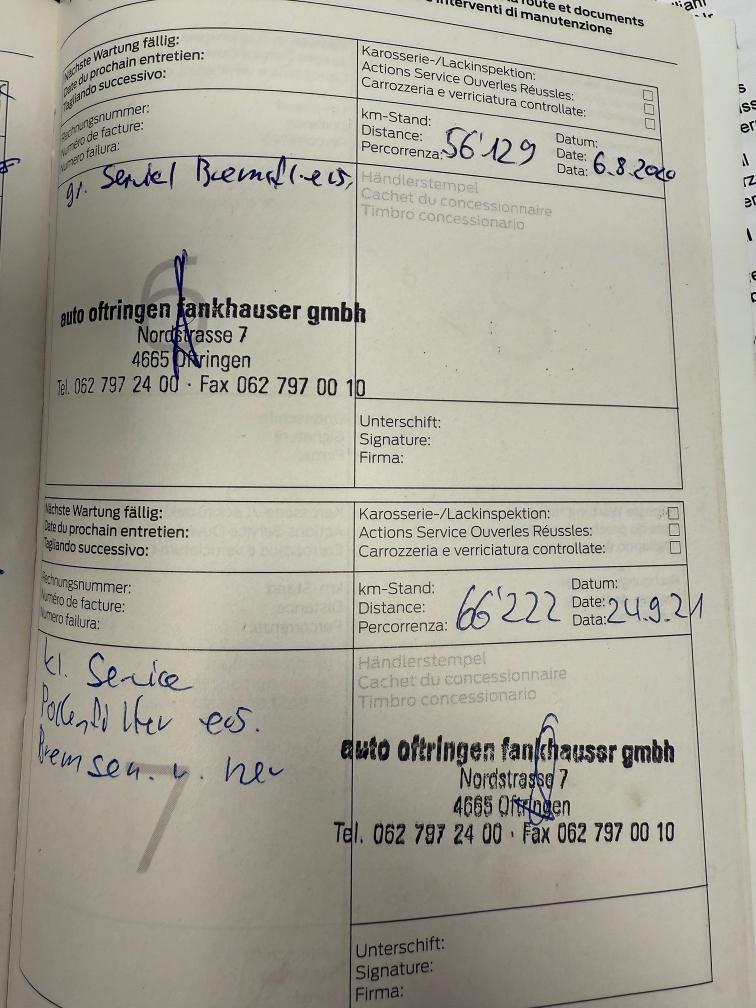 route et documents
interventi di manutenzione
Nächste Wartung fällig:
Date du prochain entretien:
Tagliando successivo:
Karosserie-/Lackinspektion:
Actions Service Ouverles Réussles:
Carrozzeria e verriciatura controllate:
Rechnungsnummer:
Numéro de facture:
Numero failura:
km-Stand:
Distance:
Percorrenza: 56'129
Datum:
Date: 6.8.2020
Data:
gr. Service
Händlerstempel
Cachet du concessionnaire
Timbro concessionario
6
auto oftringen fankhauser gmbh
Nordstrasse 7
4665 Oftringen
Tel. 062 797 24 00 · Fax 062 797 00 10
Unterschift:
Signature:
Firma:
Nächste Wartung fällig:
Date du prochain entretien:
Tagliando successivo:
Karosserie-/Lackinspektion:
Actions Service Ouverles Réussles:
Carrozzeria e verriciatura controllate:
Rechnungsnummer:
Numéro de facture:
Numero failura:
km-Stand:
Distance: 66'222
Percorrenza:
Datum:
Date:
Data: 24.9.21
kl. Service
Pollenfilter ers.
Bremsen. v. neu
Händlerstempel
Cachet du concessionnaire
Timbro concessionario
7
auto oftringen fankhauser gmbh
Nordstrasse 7
4665 Oftringen
Tel. 062 797 24 00 · Fax 062 797 00 10
Unterschift:
Signature:
Firma: